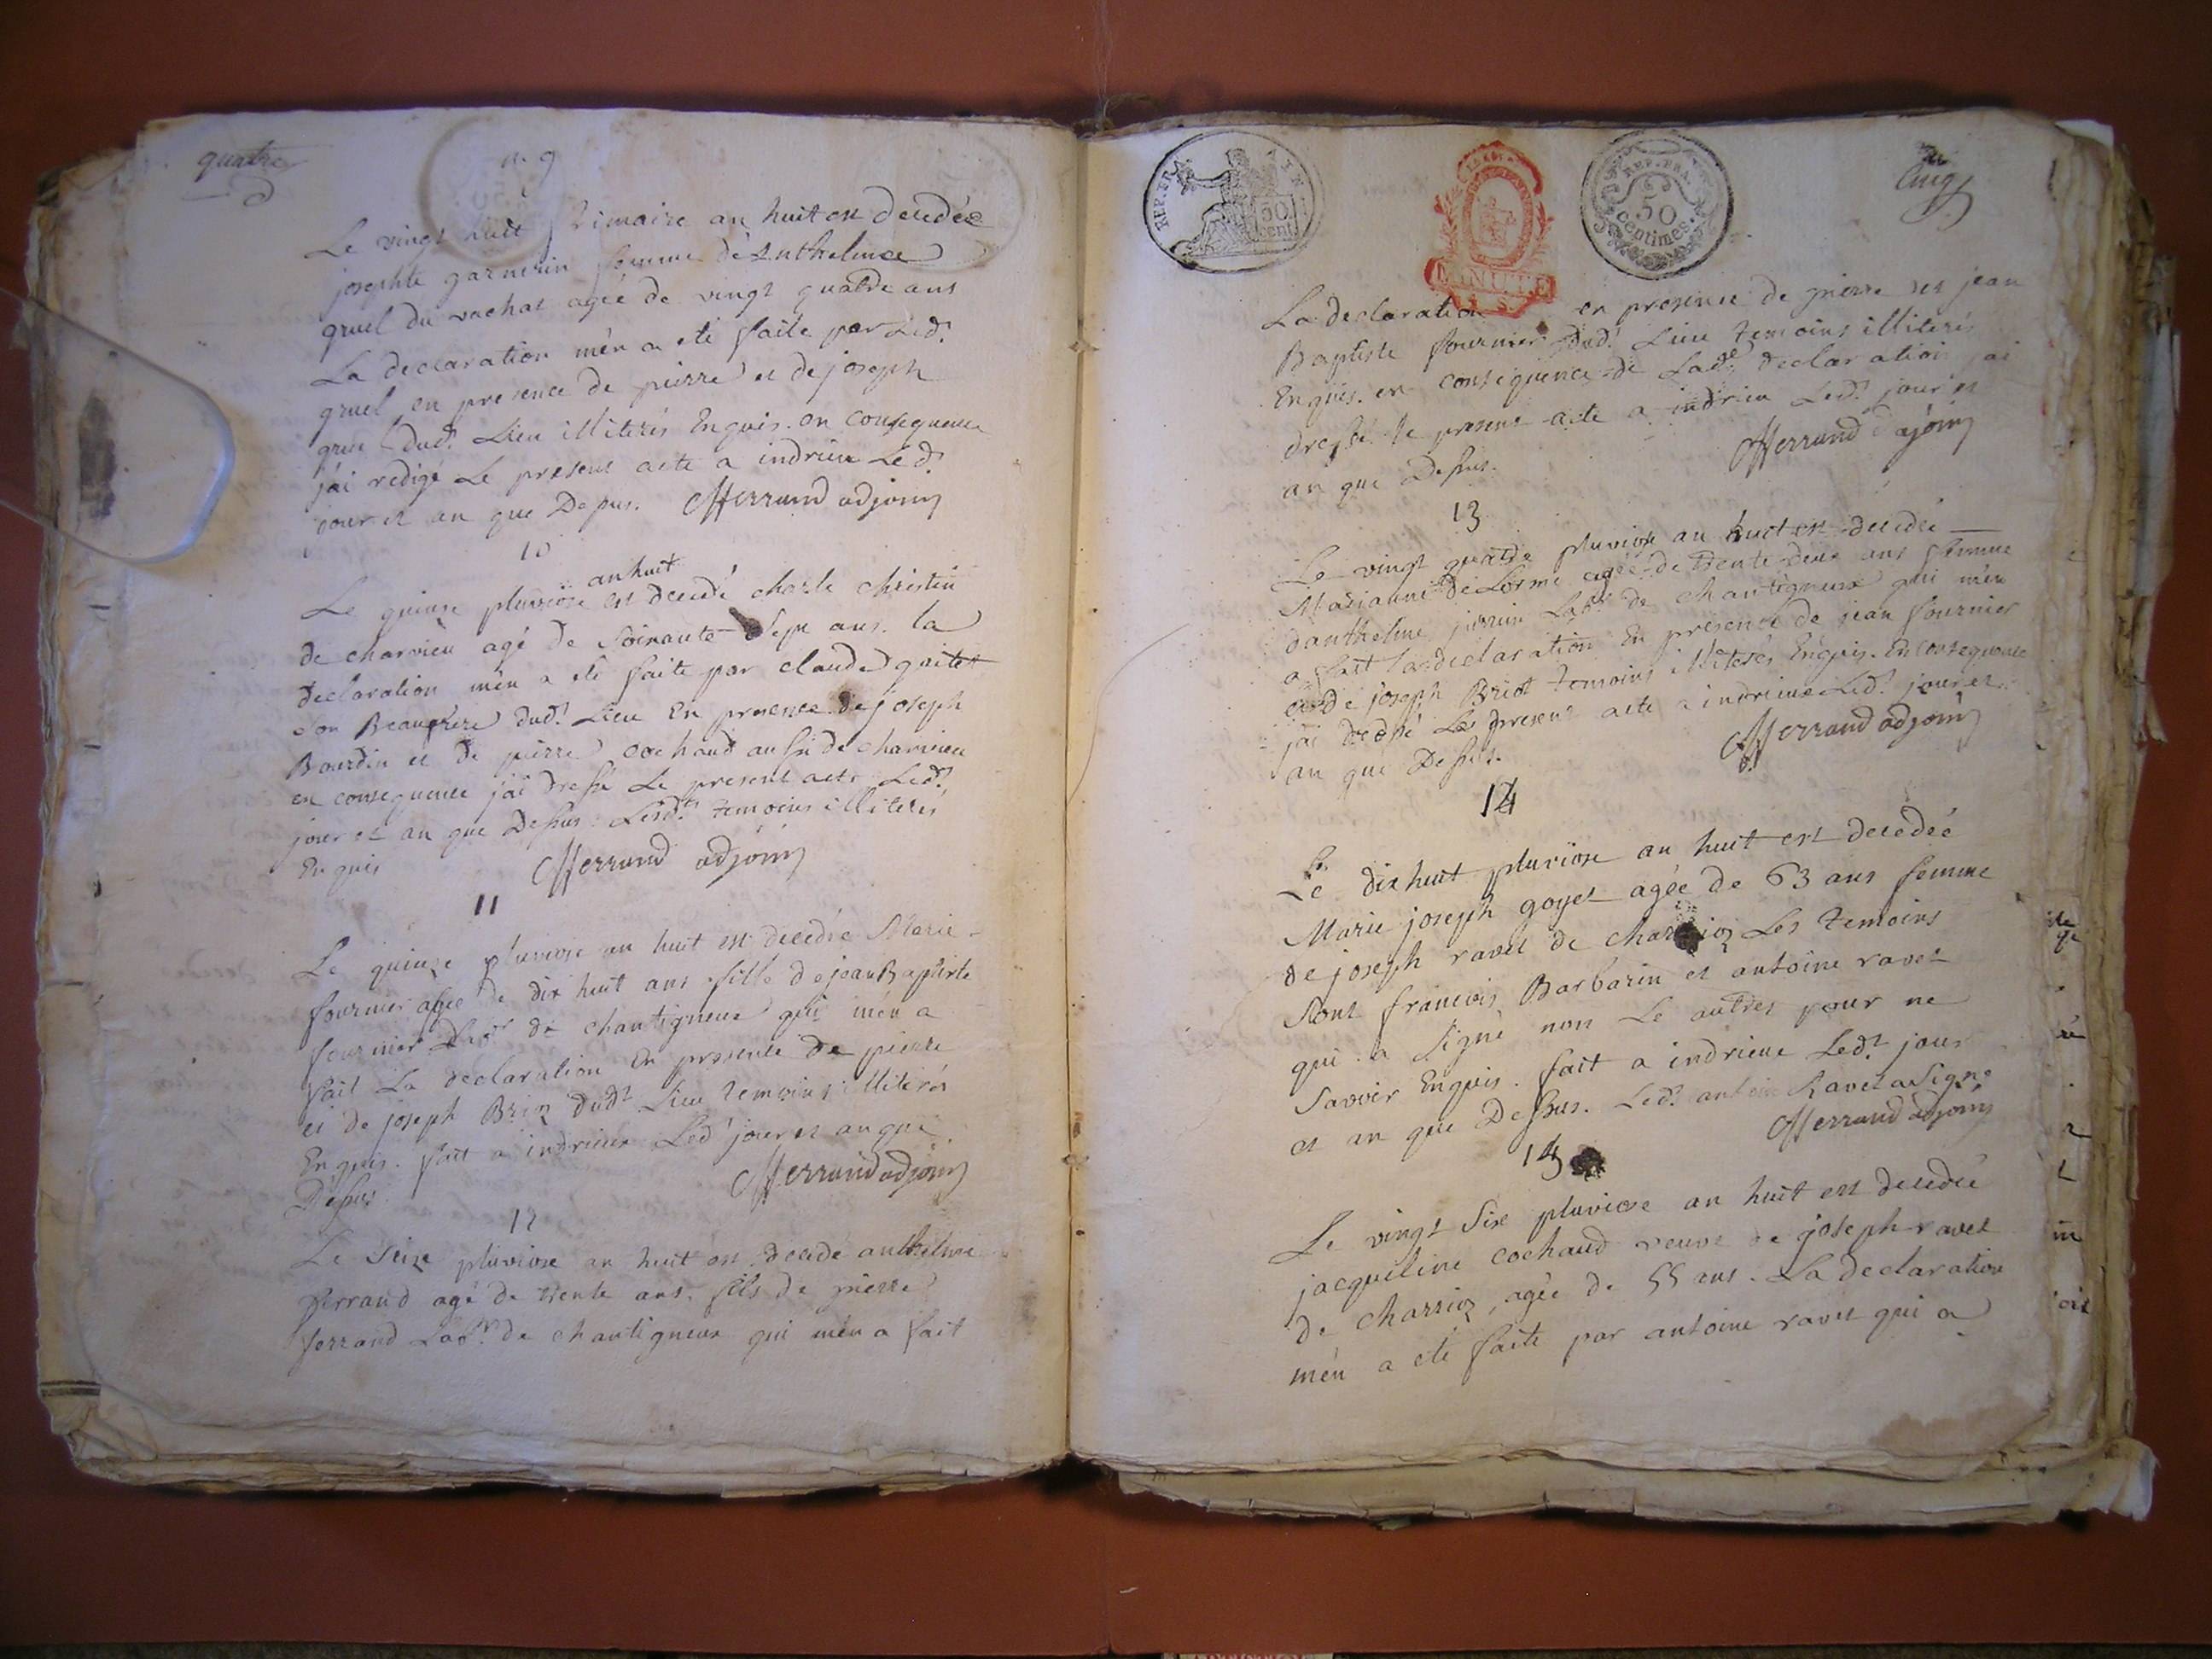 quatre
n. 9
Le vingt huit frimaire an huit est decedée
josephte garnerin femme de Anthelme
gruel du vachat agée de vingt quatre ans
La declaration m'en a eté faite par Led.t
gruel en presence de pierre et de joseph
gruel dud.t Lieu illiterés Enquis. en consequence
j'ai redigé Le present acte a indrieu Led.t
jour et an que Dessus. Merrand adjoint
10
an huit
Le quinze pluviose est decedé charle christin
de charvieu agé de Soixante Sept ans. la
declaration m'en a eté faite par claude
son Beaufrere dud.t Lieu En presence de joseph
Bourdin et de pierre cochaud aussi de charvieu
en consequence j'ai dressé Le present acte Led.t
jour et an que Dessus. Lesd.ts temoins illiterés
Enquis Merrand adjoint
11
Le quinze pluviose an huit est decedée Marie
fournier agée de dix huit ans fille de jean Baptiste
fournier de chantigneux qui m'en a
fait La declaration En presence de pierre
et de joseph dud.t Lieu temoins illiterés
Enquis. fait a indrieux Led.t jour et an que
Dessus Merrand adjoint
12
Le Seize pluviose an huit est decedé anthelme
ferrand agé de trente ans. fils de pierre
ferrand Lab.r de chantigneux qui m'en a fait
REP. FRA.
50 cent
MINUTE
REP. FRA.
50 centimes.
Cinq
La declaration en presence de pierre et jean
Baptiste fournier dud.t Lieu temoins illiterés
Enquis. en consequence de Lad.e declaration j'ai
dressé le present acte a indrieu Led.t jour et
an que Dessus. Merrand adjoint
13
Le vingt quatre pluviose an huit est decedée
Marianne De Lorme agée de trente deux ans femme
danthelme Lab.r de chantigneux qui m'en
a fait La declaration En presence de jean fournier
et de joseph temoins illiterés Enquis. En consequence
j'ai dressé Le present acte a indrieux Led.t jour et
an que Dessus. Merrand adjoint
14
Le dix huit pluviose an huit est decedée
Marie joseph goyet agée de 63 ans femme
de joseph ravet de Les temoins
Sont francois Barbarin et antoine ravet
qui a Signé non Le autres pour ne
Savoir Enquis. fait a indrieux Led.t jour
et an que Dessus. Led.t antoine Ravet a Signé
Merrand adjoint
15
Le vingt Six pluviose an huit est decedée
jacqueline cochaud veuve de joseph ravet
de charrioz, agée de 55 ans. La declaration
m'en a eté faite par antoine ravet qui a